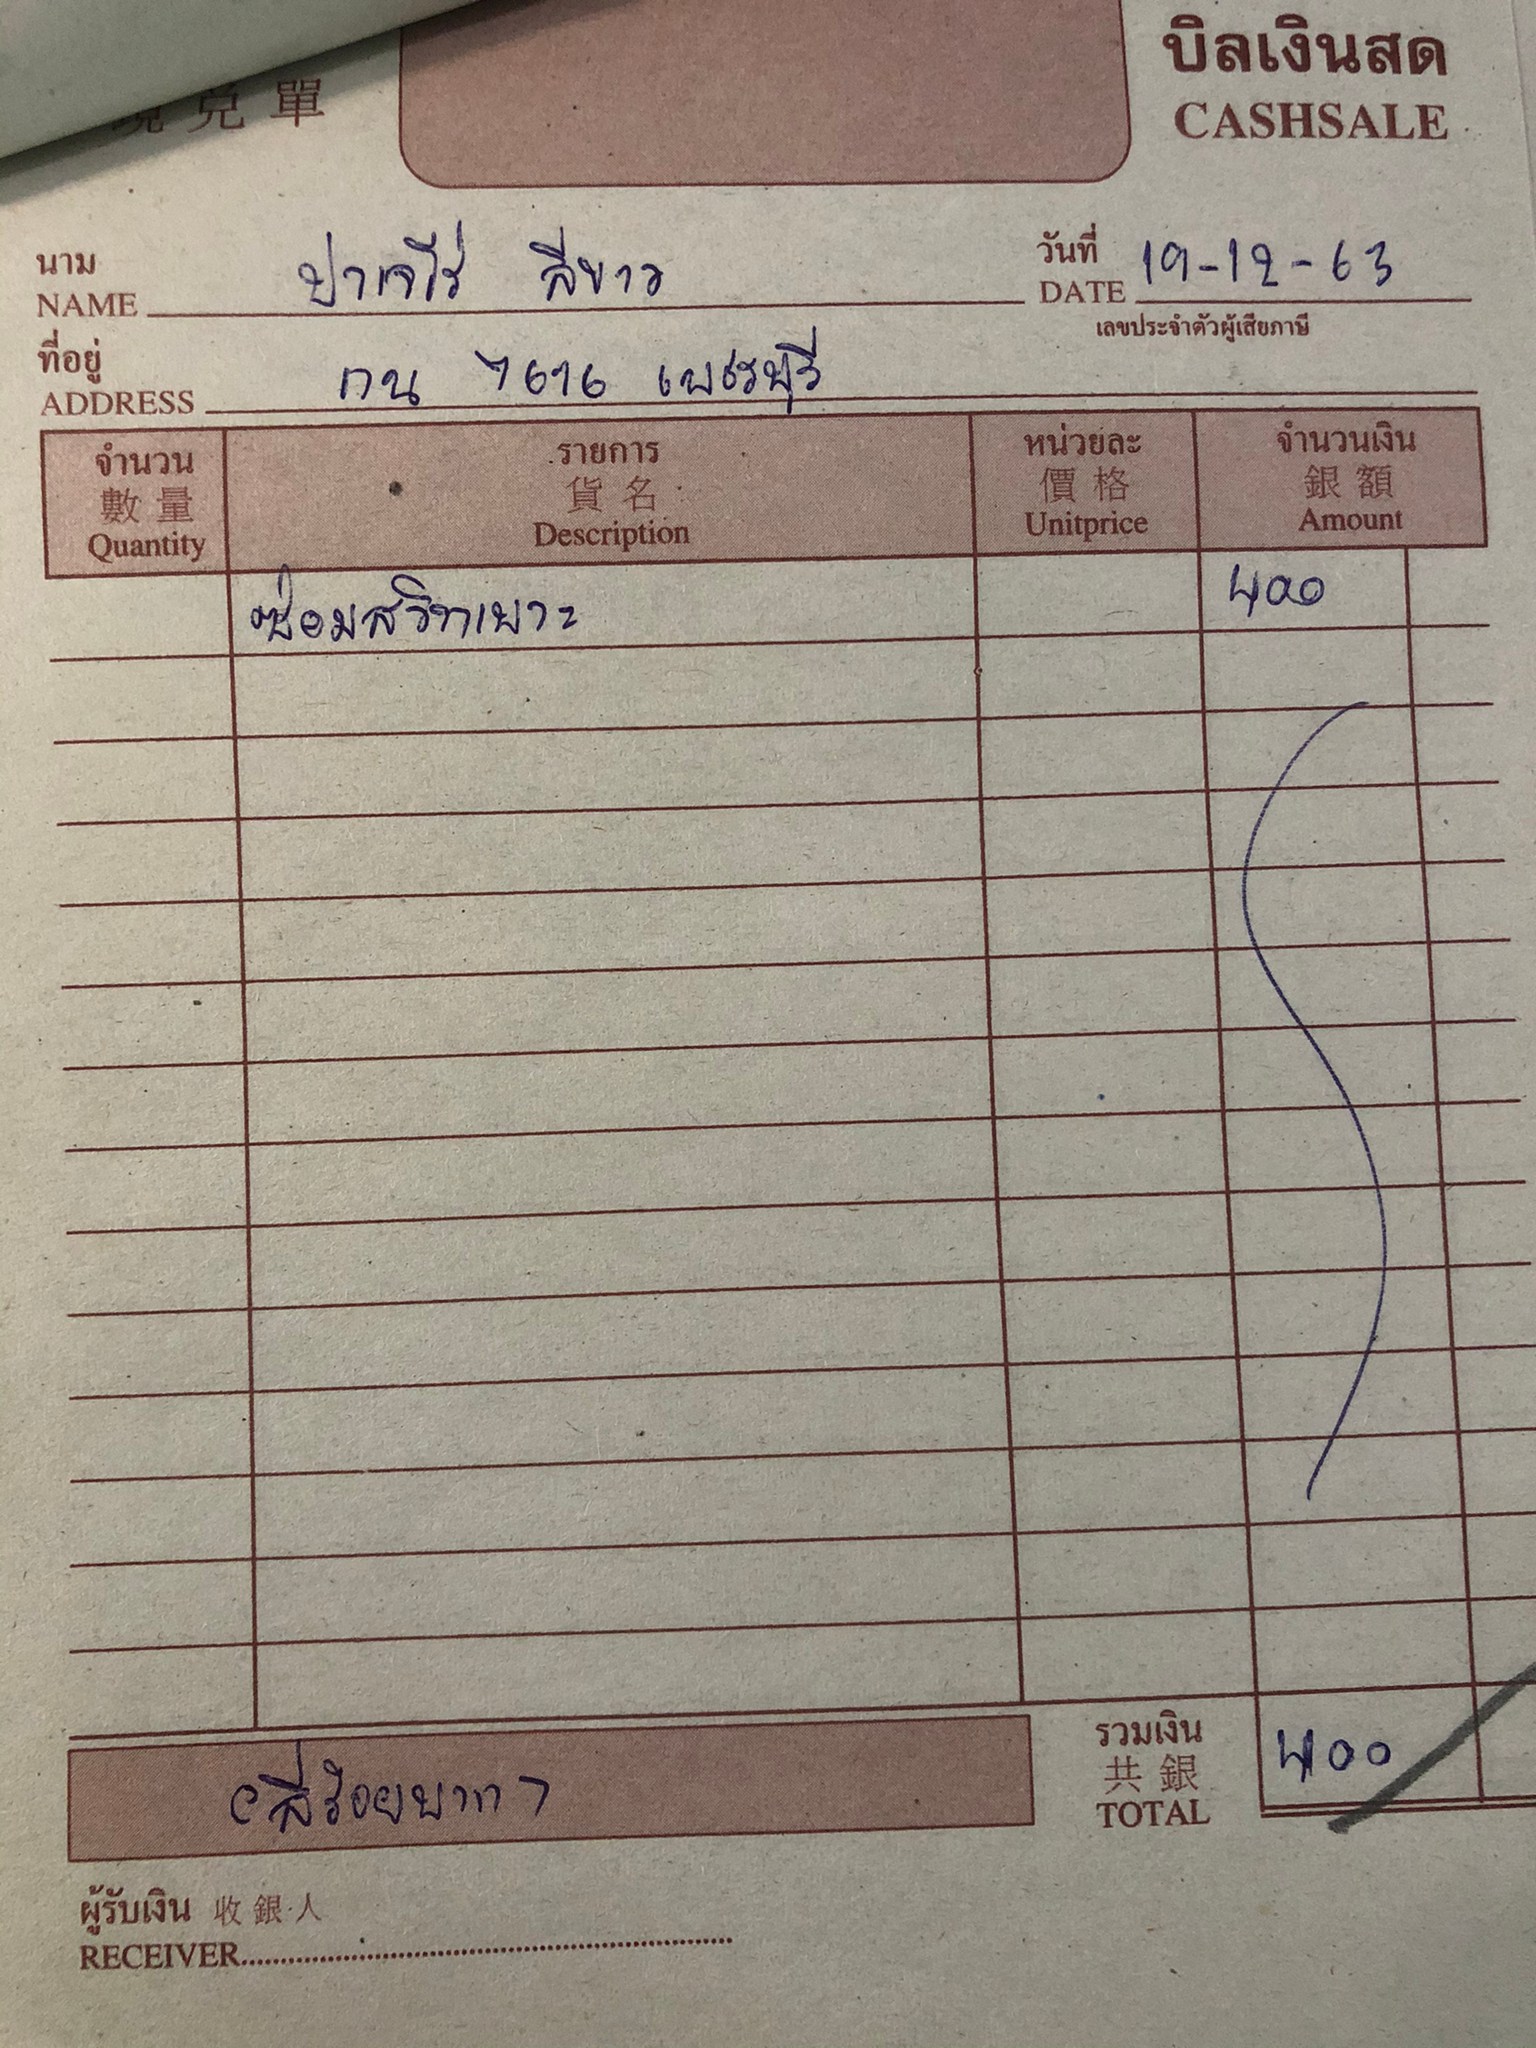 兌單
บิลเงินสด
CASHSALE
นาม
NAME ปาเจโร่ สีขาว
วันที่
DATE 19-12-63
เลขประจำตัวผู้เสียภาษี
ที่อยู่
ADDRESS กน 7676 เพชรบุรี
จำนวน รายการ หน่วยละ จำนวนเงิน
數量 貨名 價格 銀額
Quantity Description Unitprice Amount
ซ่อมสวิทเบาะ 400
(สี่ร้อยบาท)
รวมเงิน
共銀
TOTAL 400
ผู้รับเงิน 收銀人
RECEIVER